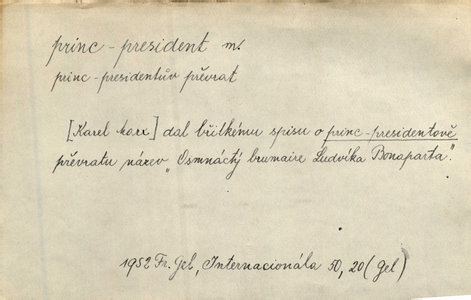 princ-president m.
princ-presidentův převrat
[Karel Marx] dal břitkému spisu o princ-presidentově
převratu název „Osmnáctý brumaire Ludvíka Bonaparta".
1952 Fr. Gel, Internacionála 50, 20 (Gel)